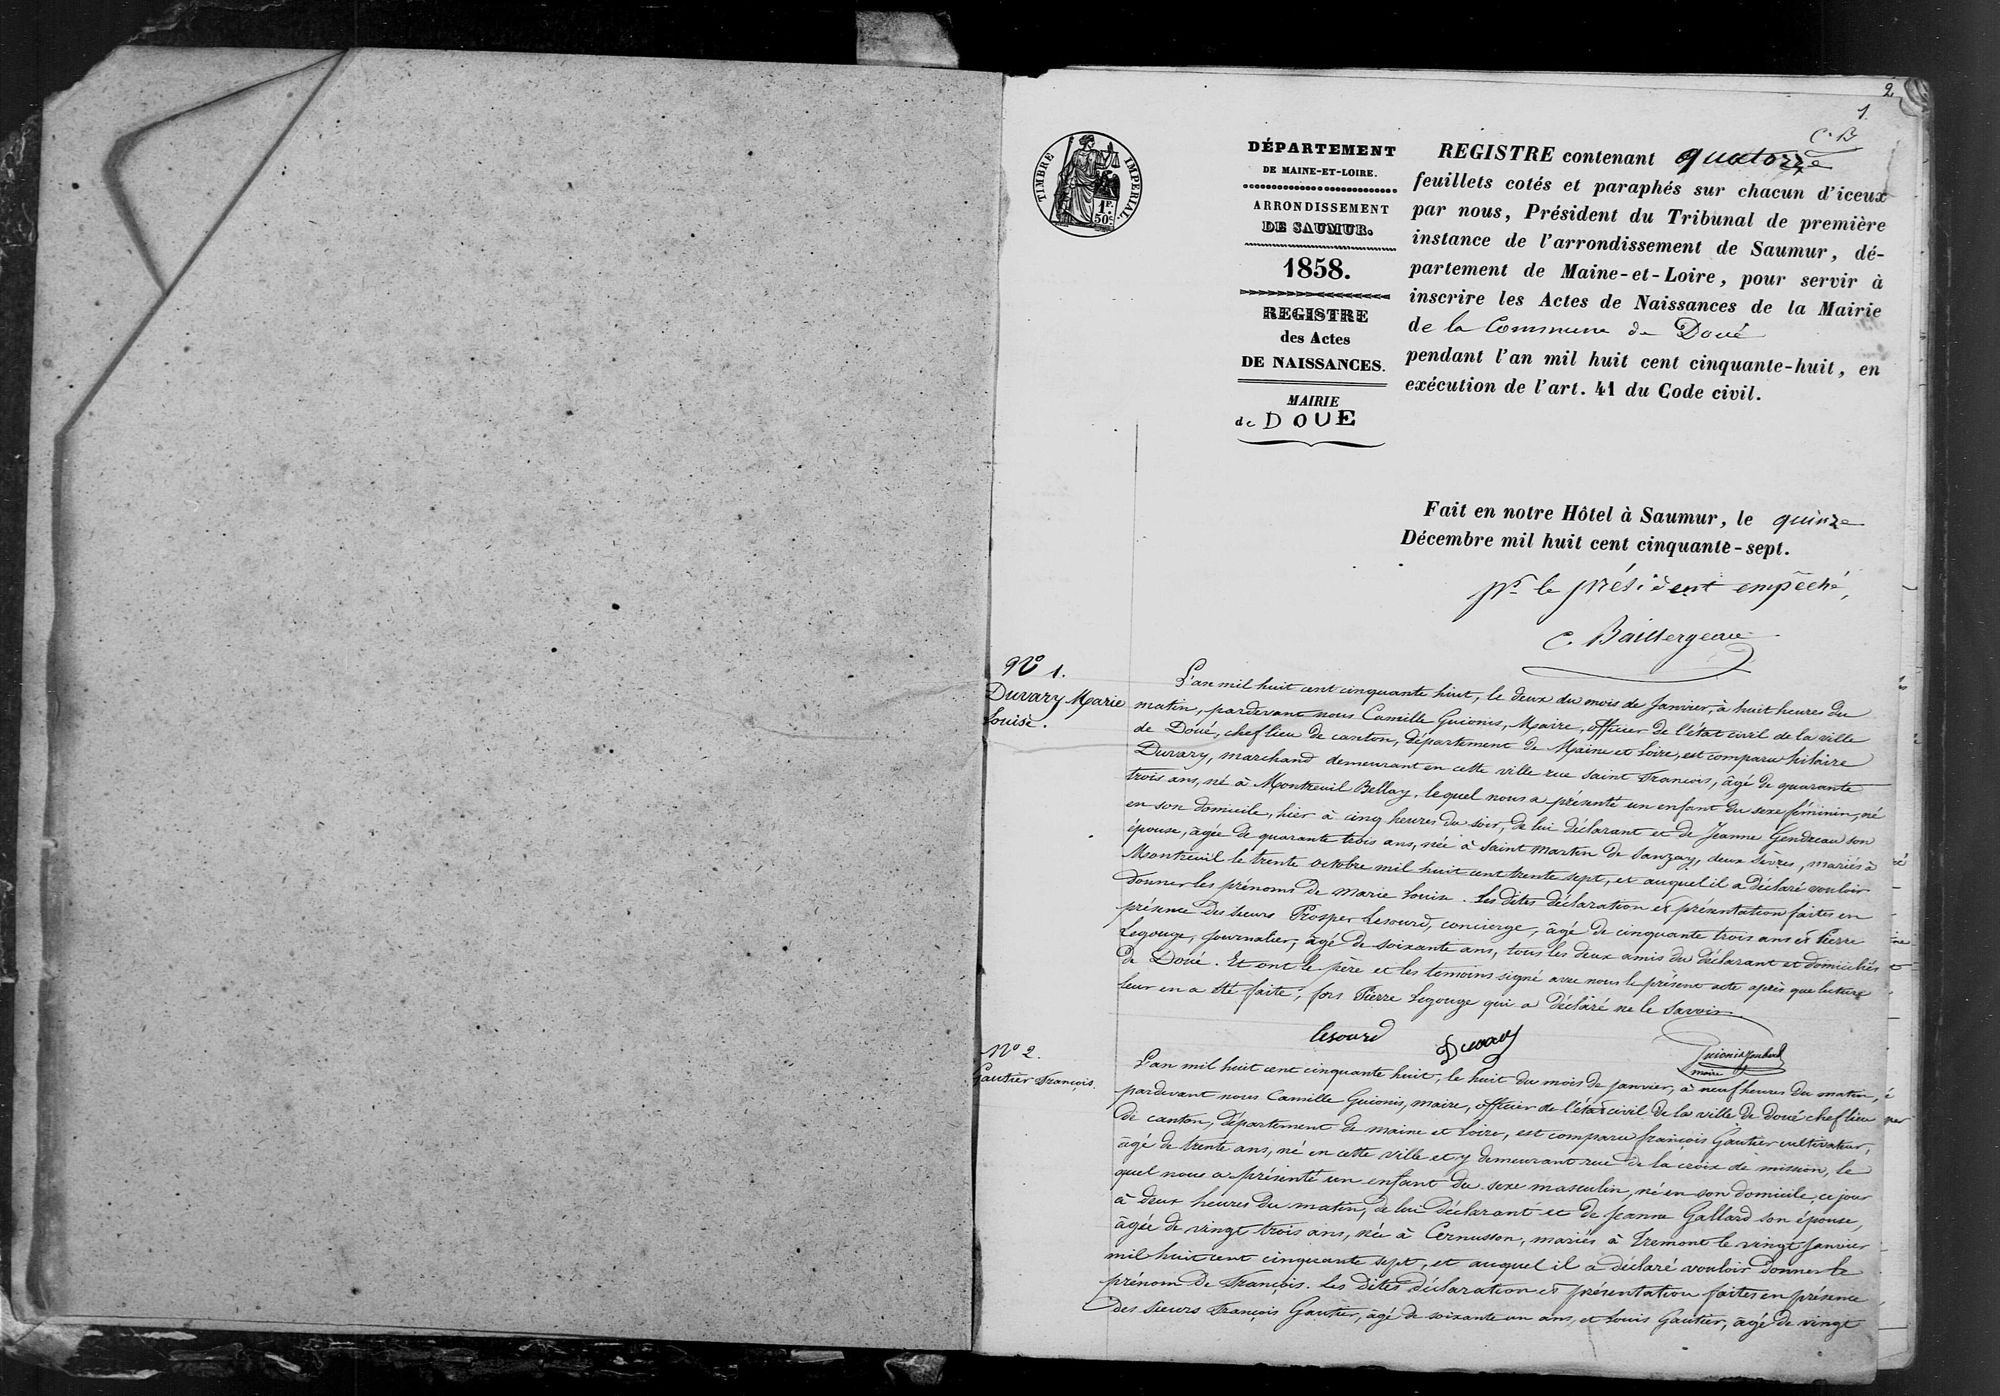 2
1
C. B
TIMBRE IMPERIAL.
1F. 50c
DÉPARTEMENT
DE MAINE-ET-LOIRE.
ARRONDISSEMENT
DE SAUMUR.
1858.
REGISTRE
des Actes
DE NAISSANCES.
MAIRIE
de DOUE
REGISTRE contenant quatorze
feuillets cotés et paraphés sur chacun d'iceux
par nous, Président du Tribunal de première
instance de l'arrondissement de Saumur, dé-
partement de Maine-et-Loire, pour servir à
inscrire les Actes de Naissances de la Mairie
de la Commune de Doué
pendant l'an mil huit cent cinquante-huit, en
exécution de l'art. 41 du Code civil.
Fait en notre Hôtel à Saumur, le quinze
Décembre mil huit cent cinquante-sept.
pr le président empêché,
C. Baillergeau
No 1.
Duvary Marie
Louise.
L'an mil huit cent cinquante huit, le deux du mois de Janvier, à huit heures du
matin, pardevant nous Camille Guionis, Maire, officier de l'état civil de la ville
de Doué, chef lieu de canton, département de Maine et Loire, est comparu hilaire
Duvary, marchand demeurant en cette ville rue Saint François, âgé de quarante
trois ans, né à Montreuil Bellay, lequel nous a présenté un enfant du sexe féminin, né
en son domicile, hier à cinq heures du soir, de lui déclarant et de Jeanne Gendreau son
épouse, âgée de quarante trois ans, née à Saint Martin de Sanzay, deux Sèvres, mariés à
Montreuil le trente octobre mil huit cent trente sept, et auquel il a déclaré vouloir
donner les prénoms de Marie Louise. Les dites déclaration et présentation faites en
présence des sieurs Prosper Lesourd, concierge, âgé de cinquante trois ans et Pierre
Legouge, journalier, âgé de soixante ans, tous les deux amis du déclarant et domiciliés
de Doué. Et ont le père et les témoins signé avec nous le présent acte après que lecture
leur en a été faite, fors Pierre Legouge qui a déclaré ne le savoir.
Lesourd Duvary Guionis Joubert
maire
No 2.
Gautier François.
L'an mil huit cent cinquante huit, le huit du mois de janvier, à neuf heures du matin,
pardevant nous Camille Guionis, maire, officier de l'état civil de la ville de Doué chef lieu
de canton, département de maine et Loire, est comparu françois Gautier cultivateur,
âgé de trente ans, né en cette ville et y demeurant rue de la croix de mission, le
quel nous a présenté un enfant du sexe masculin, né en son domicile, ce jour
à deux heures du matin, de lui déclarant et de Jeanne Gallard son épouse,
âgée de vingt trois ans, née à Cernusson, mariés à Tremont le vingt janvier
mil huit cent cinquante sept, et auquel il a déclaré vouloir donner le
prénom de François. Les dites déclaration et présentation faites en présence
des sieurs François Gautier, âgé de soixante un ans, et Louis Gautier, âgé de vingt